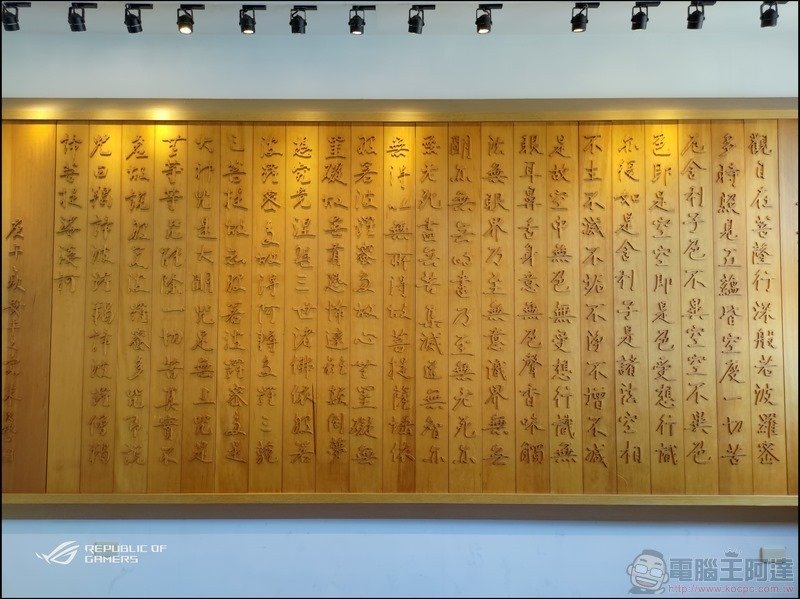 觀自在菩薩行深般若波羅蜜
多時照見五蘊皆空度一切苦
厄舍利子色不異空空不異色
色即是空空即是色受想行識
亦復如是舍利子是諸法空相
不生不滅不垢不淨不增不減
是故空中無色無受想行識無
眼耳鼻舌身意無色聲香味觸
法無眼界乃至無意識界無無
明亦無無明盡乃至無老死亦
無老死盡無苦集滅道無智亦
無得以無所得故菩提薩埵依
般若波羅蜜多故心無罣礙無
罣礙故無有恐怖遠離顛倒夢
想究竟涅槃三世諸佛依般若
波羅蜜多故得阿耨多羅三藐
三菩提故知般若波羅蜜多是
大神咒是大明咒是無上咒是
無等等咒能除一切苦真實不
虛故說般若波羅蜜多咒即說
咒曰揭諦波羅揭諦波羅僧揭
諦菩提娑婆訶
REPUBLIC OF
GAMERS
電腦王阿達
http://www.kocpc.com.tw